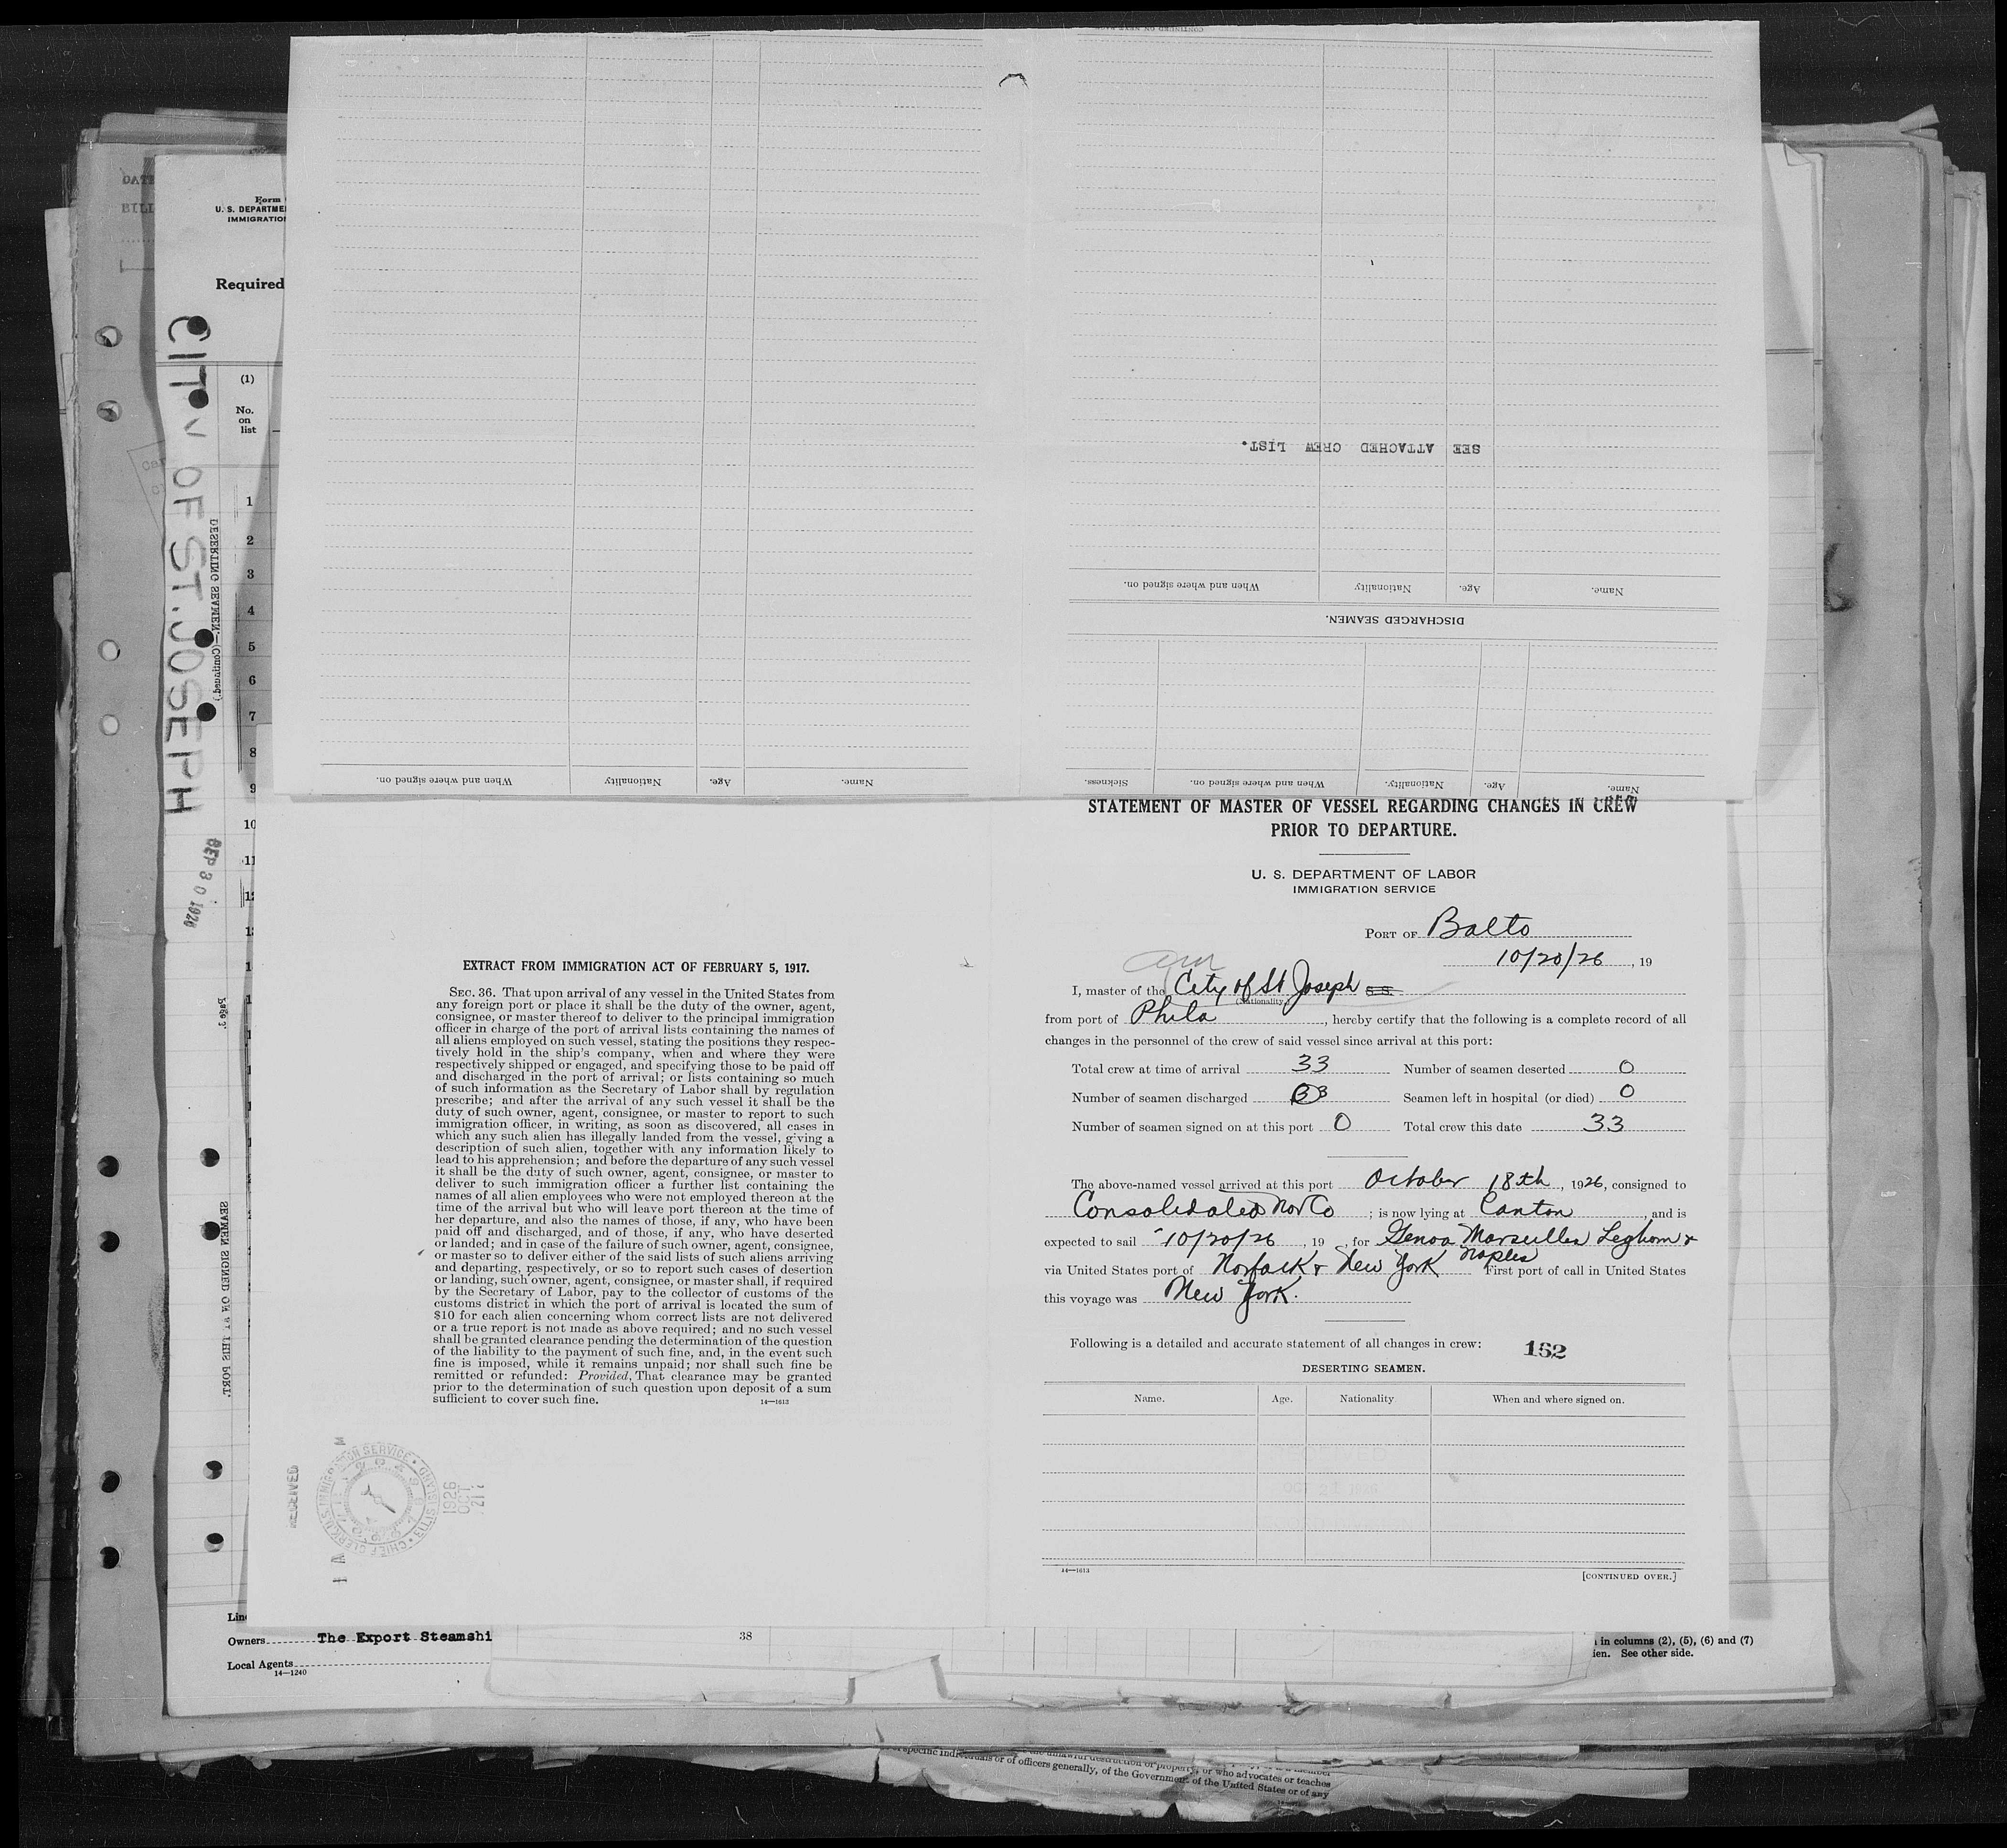 CONTINUED ON NEXT PAGE
SEE ATTACHED CREW LIST.
When and where signed on.
Nationality
Age.
Name.
DISCHARGED SEAMEN.
When and where signed on.
Nationality
Age.
Name.
Sickness.
When and where signed on.
Nationality.
Age.
Name.
DATE
BILL
Form
U. S. DEPARTME
IMMIGRATION
Required
(1)
No.
on
list
1
2
3
4
5
6
7
8
9
10
11
12
CITY OF ST. JOSEPH
DESERTING SEAMEN.—(Continued.)
SEP 30 1926
Page 2
SEAMEN SIGNED ON AT THIS PORT.
EXTRACT FROM IMMIGRATION ACT OF FEBRUARY 5, 1917.
SEC. 36. That upon arrival of any vessel in the United States from
any foreign port or place it shall be the duty of the owner, agent,
consignee, or master thereof to deliver to the principal immigration
officer in charge of the port of arrival lists containing the names of
all aliens employed on such vessel, stating the positions they respec-
tively hold in the ship's company, when and where they were
respectively shipped or engaged, and specifying those to be paid off
and discharged in the port of arrival; or lists containing so much
of such information as the Secretary of Labor shall by regulation
prescribe; and after the arrival of any such vessel it shall be the
duty of such owner, agent, consignee, or master to report to such
immigration officer, in writing, as soon as discovered, all cases in
which any such alien has illegally landed from the vessel, giving a
description of such alien, together with any information likely to
lead to his apprehension; and before the departure of any such vessel
it shall be the duty of such owner, agent, consignee, or master to
deliver to such immigration officer a further list containing the
names of all alien employees who were not employed thereon at the
time of the arrival but who will leave port thereon at the time of
her departure, and also the names of those, if any, who have been
paid off and discharged, and of those, if any, who have deserted
or landed; and in case of the failure of such owner, agent, consignee,
or master so to deliver either of the said lists of such aliens arriving
and departing, respectively, or so to report such cases of desertion
or landing, such owner, agent, consignee, or master shall, if required
by the Secretary of Labor, pay to the collector of customs of the
customs district in which the port of arrival is located the sum of
$10 for each alien concerning whom correct lists are not delivered
or a true report is not made as above required; and no such vessel
shall be granted clearance pending the determination of the question
of the liability to the payment of such fine, and, in the event such
fine is imposed, while it remains unpaid; nor shall such fine be
remitted or refunded: Provided, That clearance may be granted
prior to the determination of such question upon deposit of a sum
sufficient to cover such fine.
14—1613
RECEIVED
CHIEF CLERK U.S. IMMIGRATION SERVICE • ELLIS ISLAND •
1926
OCT
21
STATEMENT OF MASTER OF VESSEL REGARDING CHANGES IN CREW
PRIOR TO DEPARTURE.
U. S. DEPARTMENT OF LABOR
IMMIGRATION SERVICE
PORT OF Balto
10/20/26, 19
am
I, master of the City of St Joseph S.S.
(Nationality)
from port of Phila, hereby certify that the following is a complete record of all
changes in the personnel of the crew of said vessel since arrival at this port:
Total crew at time of arrival 33 Number of seamen deserted 0
Number of seamen discharged Seamen left in hospital (or died) 0
Number of seamen signed on at this port 0 Total crew this date 33
The above-named vessel arrived at this port October 18th, 1926, consigned to
Consolidated Nav Co; is now lying at Canton, and is
expected to sail 10/20/26, 19 , for Genoa Marseilles Leghorn &
Naples
via United States port of Norfolk & New York First port of call in United States
this voyage was New York.
Following is a detailed and accurate statement of all changes in crew: 152
DESERTING SEAMEN.
Name. Age. Nationality When and where signed on.
OCT 21 1926
14—1613
[CONTINUED OVER.]
Line
Owners The Export Steamshi
Local Agents
14—1240
38
in columns (2), (5), (6) and (7)
ien. See other side.
or who advocates or teaches
or of officers generally, of the Government of the United States or of any